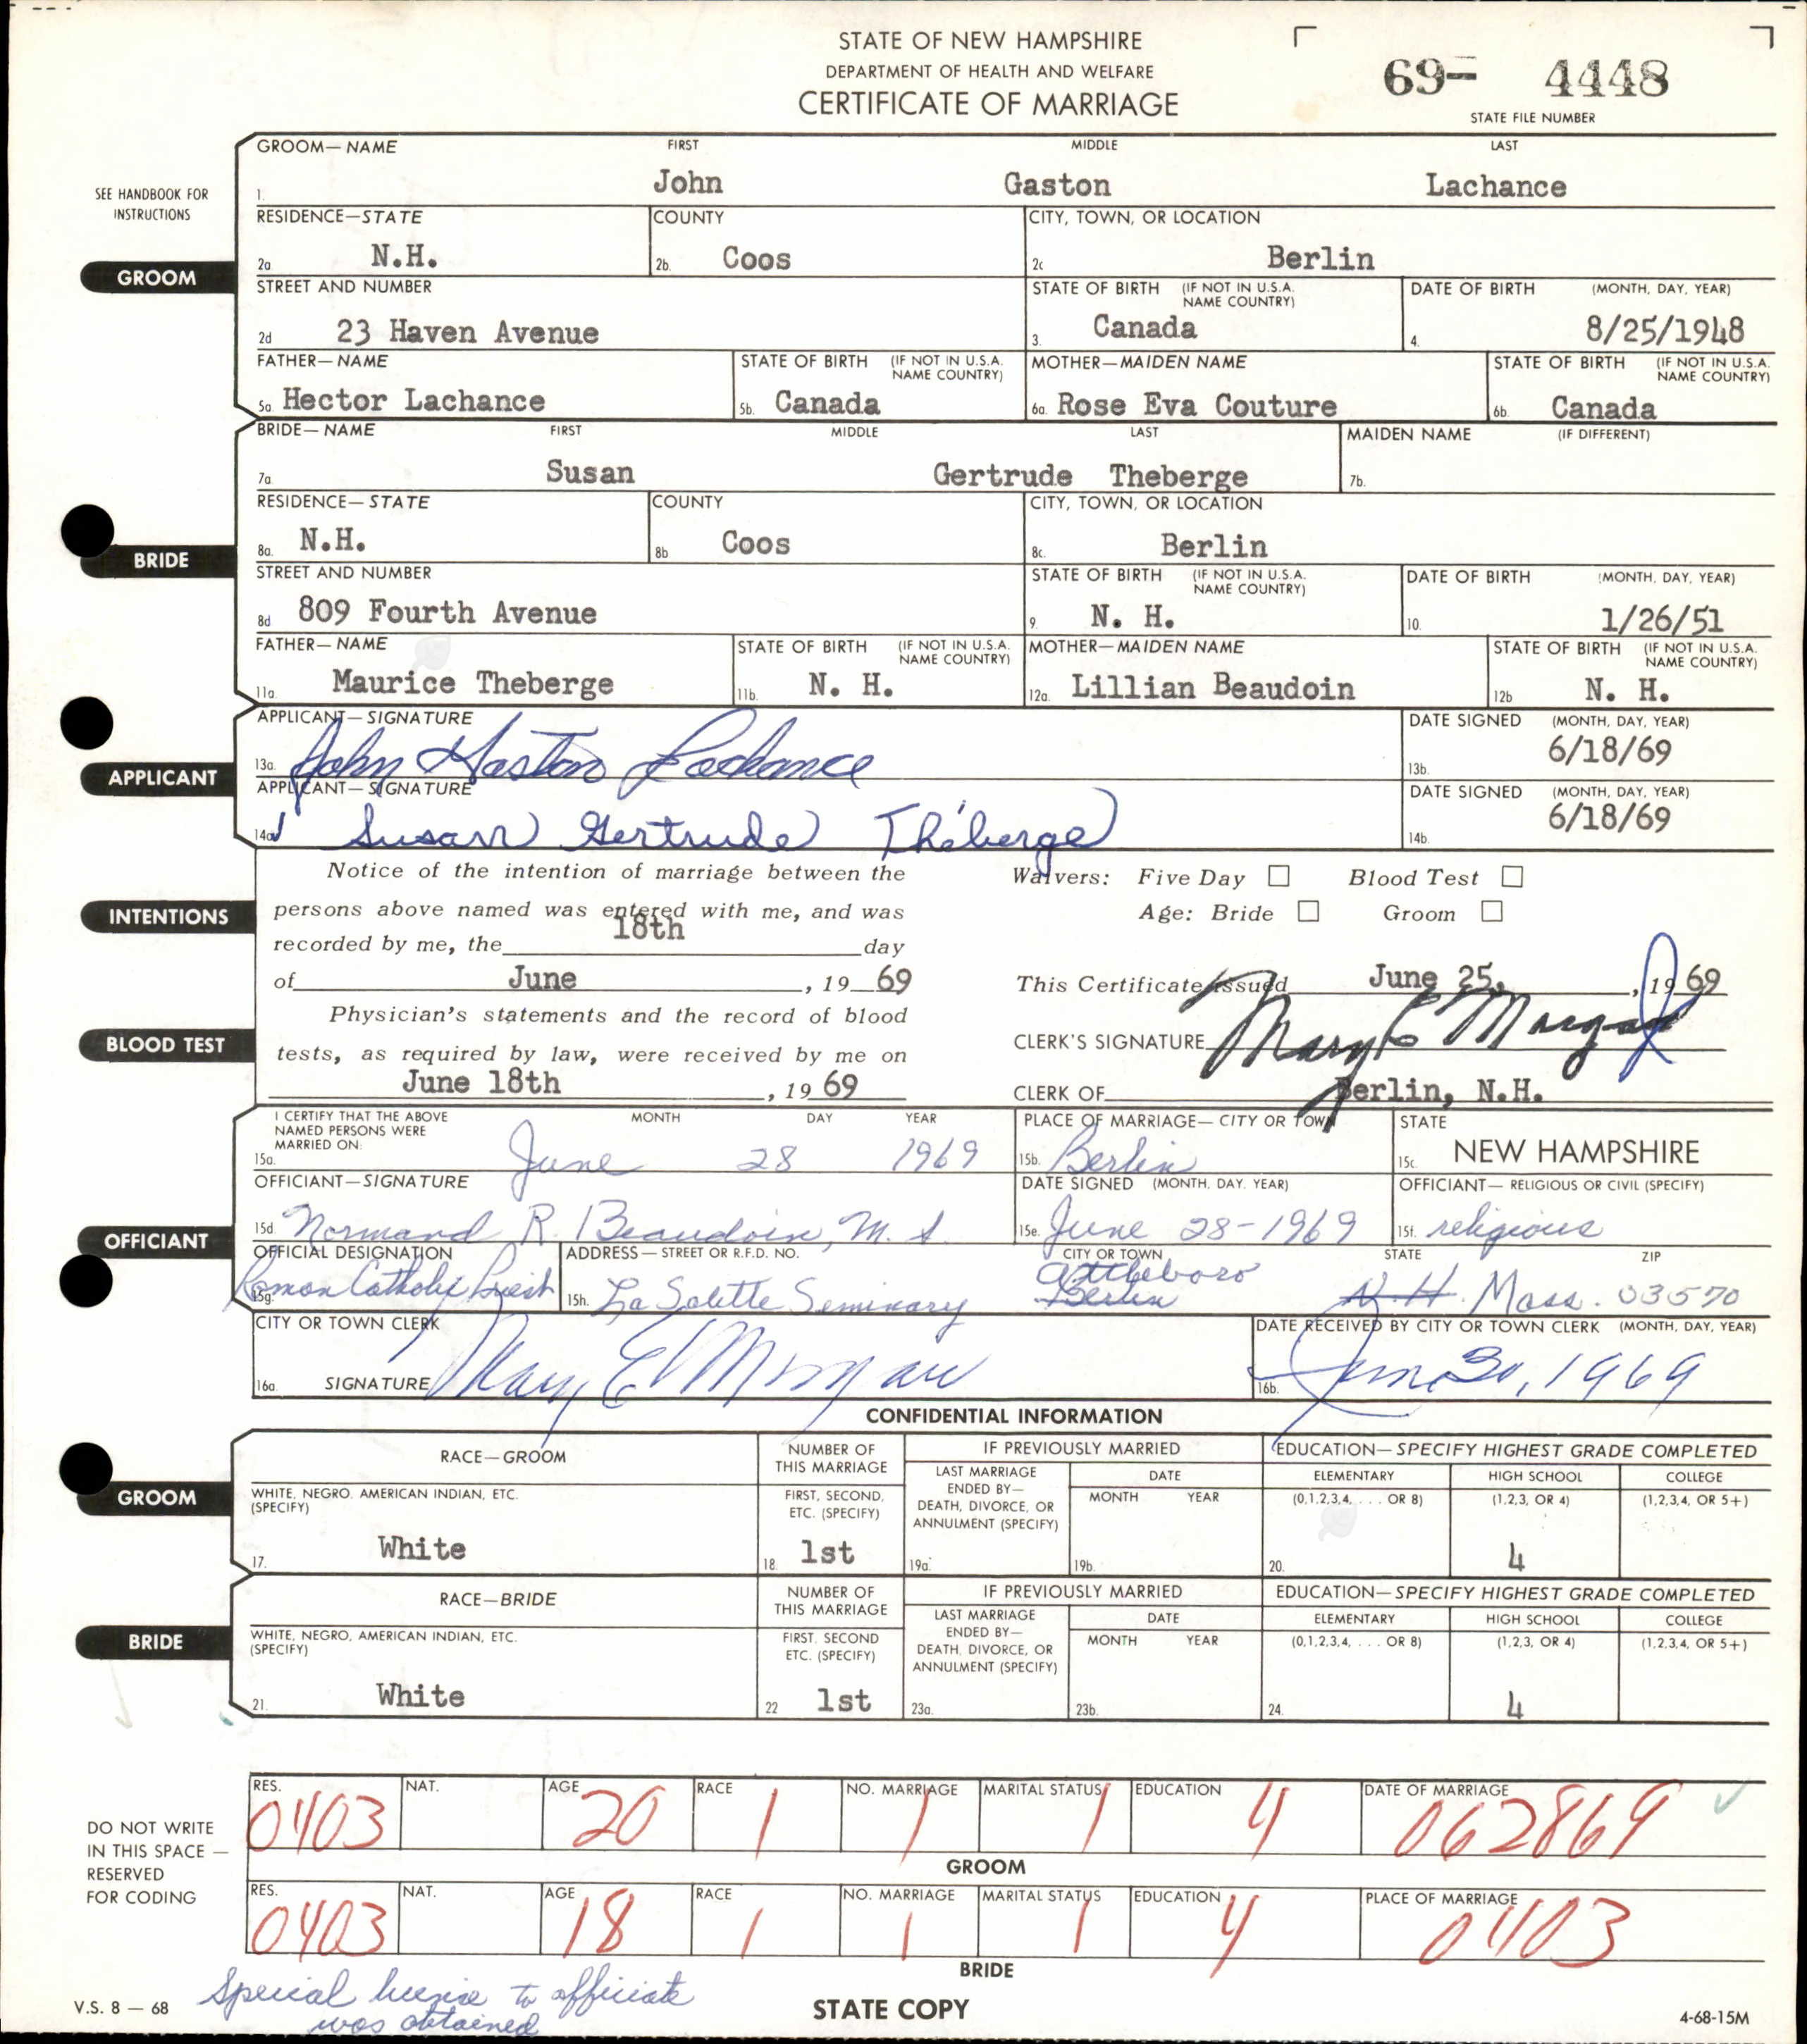 STATE OF NEW HAMPSHIRE
DEPARTMENT OF HEALTH AND WELFARE
CERTIFICATE OF MARRIAGE
69- 4448
STATE FILE NUMBER
SEE HANDBOOK FOR INSTRUCTIONS
GROOM
GROOM—NAME FIRST MIDDLE LAST
1. John Gaston Lachance
RESIDENCE—STATE COUNTY CITY, TOWN, OR LOCATION
2a. N.H. 2b. Coos 2c Berlin
STREET AND NUMBER STATE OF BIRTH (IF NOT IN U.S.A. NAME COUNTRY) DATE OF BIRTH (MONTH, DAY, YEAR)
2d 23 Haven Avenue 3. Canada 4. 8/25/1948
FATHER—NAME STATE OF BIRTH (IF NOT IN U.S.A. NAME COUNTRY) MOTHER—MAIDEN NAME STATE OF BIRTH (IF NOT IN U.S.A. NAME COUNTRY)
5a. Hector Lachance 5b. Canada 6a. Rose Eva Couture 6b. Canada
BRIDE
BRIDE—NAME FIRST MIDDLE LAST MAIDEN NAME (IF DIFFERENT)
7a Susan Gertrude Theberge 7b.
RESIDENCE—STATE COUNTY CITY, TOWN, OR LOCATION
8a. N.H. 8b Coos 8c. Berlin
STREET AND NUMBER STATE OF BIRTH (IF NOT IN U.S.A. NAME COUNTRY) DATE OF BIRTH (MONTH, DAY, YEAR)
8d 809 Fourth Avenue 9. N. H. 10. 1/26/51
FATHER—NAME STATE OF BIRTH (IF NOT IN U.S.A. NAME COUNTRY) MOTHER—MAIDEN NAME STATE OF BIRTH (IF NOT IN U.S.A. NAME COUNTRY)
11a. Maurice Theberge 11b. N. H. 12a. Lillian Beaudoin 12b N. H.
APPLICANT
APPLICANT—SIGNATURE DATE SIGNED (MONTH, DAY, YEAR)
13a. John Gaston Lachance 13b. 6/18/69
APPLICANT—SIGNATURE DATE SIGNED (MONTH, DAY, YEAR)
14a. Susan Gertrude Théberge 14b. 6/18/69
INTENTIONS
Notice of the intention of marriage between the
persons above named was entered with me, and was
recorded by me, the 18th day
of June, 19 69
Waivers: Five Day □ Blood Test □
Age: Bride □ Groom □
BLOOD TEST
Physician's statements and the record of blood
tests, as required by law, were received by me on
June 18th, 19 69
This Certificate issued June 25, , 19 69
CLERK'S SIGNATURE Mary E Morgan
CLERK OF Berlin, N.H.
OFFICIANT
I CERTIFY THAT THE ABOVE NAMED PERSONS WERE MARRIED ON: MONTH DAY YEAR PLACE OF MARRIAGE—CITY OR TOWN STATE
15a. June 28 1969 15b. Berlin 15c. NEW HAMPSHIRE
OFFICIANT—SIGNATURE DATE SIGNED (MONTH, DAY, YEAR) OFFICIANT—RELIGIOUS OR CIVIL (SPECIFY)
15d. Normand R. Beaudoin, M.S. 15e. June 28-1969 15f. religious
OFFICIAL DESIGNATION ADDRESS—STREET OR R.F.D. NO. CITY OR TOWN STATE ZIP
15g. Roman Catholic Priest 15h. La Salette Seminary Attleboro Berlin N.H. Mass. 03570
CITY OR TOWN CLERK DATE RECEIVED BY CITY OR TOWN CLERK (MONTH, DAY, YEAR)
16a. SIGNATURE Mary E Morgan 16b. June 30, 1969
CONFIDENTIAL INFORMATION
GROOM
RACE—GROOM NUMBER OF THIS MARRIAGE IF PREVIOUSLY MARRIED EDUCATION—SPECIFY HIGHEST GRADE COMPLETED
WHITE, NEGRO, AMERICAN INDIAN, ETC. (SPECIFY) FIRST, SECOND, ETC. (SPECIFY) LAST MARRIAGE ENDED BY— DEATH, DIVORCE, OR ANNULMENT (SPECIFY) DATE MONTH YEAR ELEMENTARY (0,1,2,3,4, . . . OR 8) HIGH SCHOOL (1,2,3, OR 4) COLLEGE (1,2,3,4, OR 5+)
17. White 18. 1st 19a. 19b. 20. 4
BRIDE
RACE—BRIDE NUMBER OF THIS MARRIAGE IF PREVIOUSLY MARRIED EDUCATION—SPECIFY HIGHEST GRADE COMPLETED
WHITE, NEGRO, AMERICAN INDIAN, ETC. (SPECIFY) FIRST, SECOND ETC. (SPECIFY) LAST MARRIAGE ENDED BY— DEATH, DIVORCE, OR ANNULMENT (SPECIFY) DATE MONTH YEAR ELEMENTARY (0,1,2,3,4, . . . OR 8) HIGH SCHOOL (1,2,3, OR 4) COLLEGE (1,2,3,4, OR 5+)
21. White 22 1st 23a. 23b. 24. 4
DO NOT WRITE IN THIS SPACE — RESERVED FOR CODING
RES. NAT. AGE RACE NO. MARRIAGE MARITAL STATUS EDUCATION DATE OF MARRIAGE
0403 20 1 1 1 4 062869
GROOM
RES. NAT. AGE RACE NO. MARRIAGE MARITAL STATUS EDUCATION PLACE OF MARRIAGE
0403 18 1 1 1 4 0403
BRIDE
Special license to officiate
was obtained
V.S. 8 — 68 STATE COPY 4-68-15M